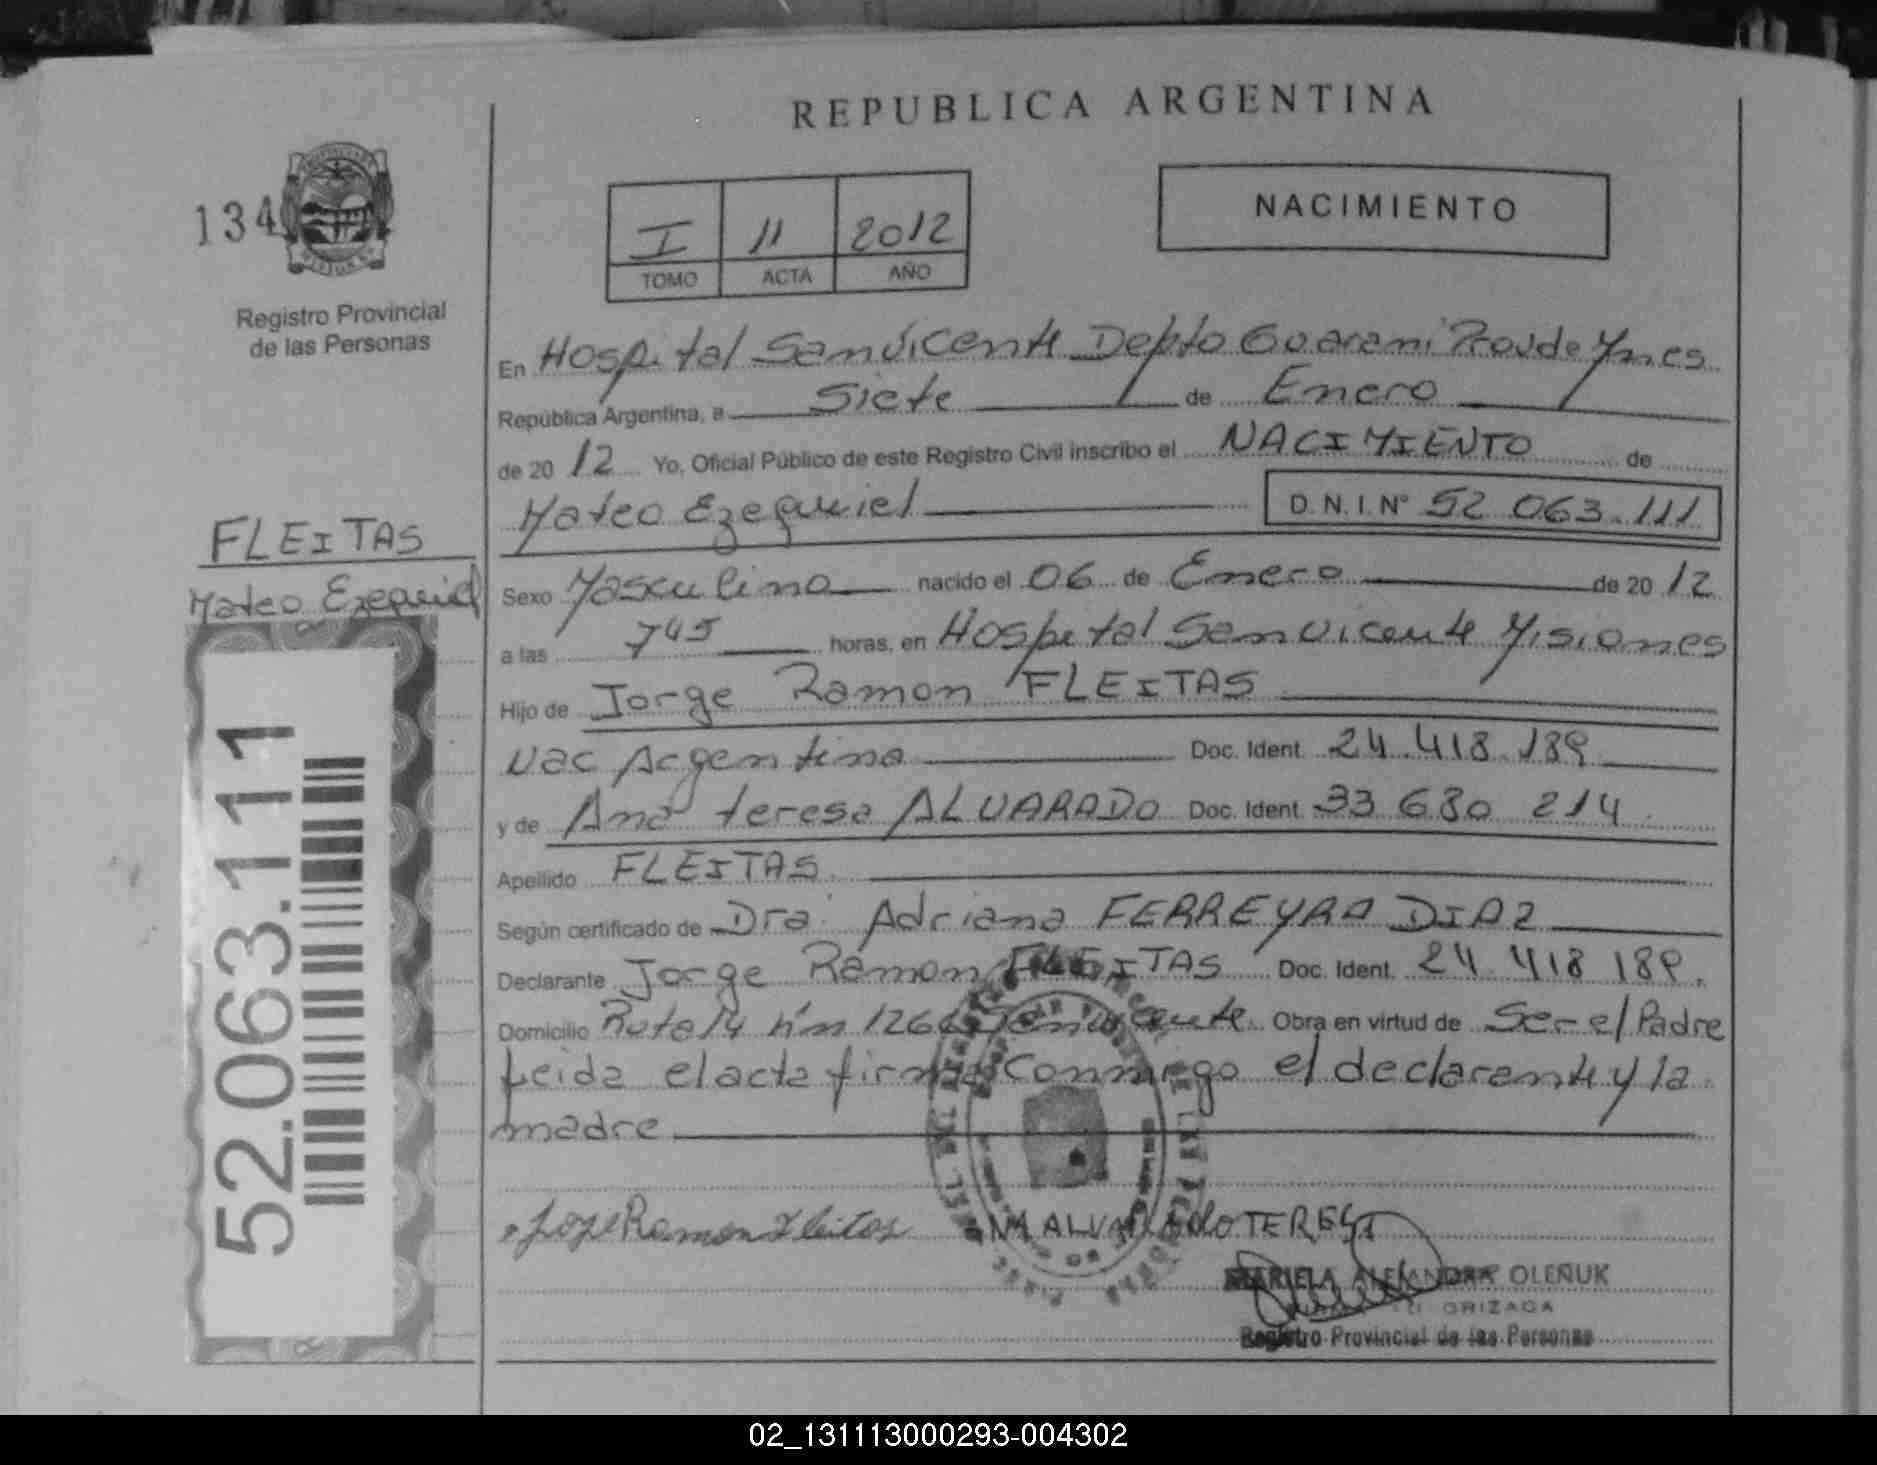 REPUBLICA ARGENTINA
134
I 11 2012
TOMO ACTA AÑO
NACIMIENTO
Registro Provincial
de las Personas
En Hospital San Vicente Depto Guarani Prov de Mnes
República Argentina, a Siete de Enero
de 20 12 Yo, Oficial Público de este Registro Civil inscribo el NACIMIENTO de
Mateo Ezequiel D.N.I. N° 52 063.111
FLEITAS
Mateo Ezequiel
Sexo Masculino nacido el 06 de Enero de 20 12
a las 745 horas, en Hospital San Vicente Misiones
Hijo de Jorge Ramon FLEITAS
Nac Argentina Doc. Ident. 24.418.189
y de Ana teresa ALVARADO Doc. Ident. 33 680 214
Apellido FLEITAS
Según certificado de Dra. Adriana FERREYRA DIAZ
Declarante Jorge Ramon FLEITAS Doc. Ident. 24 418 189.
Domicilio Ruta 14 km 1266 San Vicente Obra en virtud de Ser el Padre
Leida el acta firman Conmigo el declarante y la
madre
52.063.111
Jorge Ramon Fleitas ANA ALVARADO TERESA
MARIELA ALEJANDRA OLEÑUK
Registro Provincial de las Personas
02_131113000293-004302